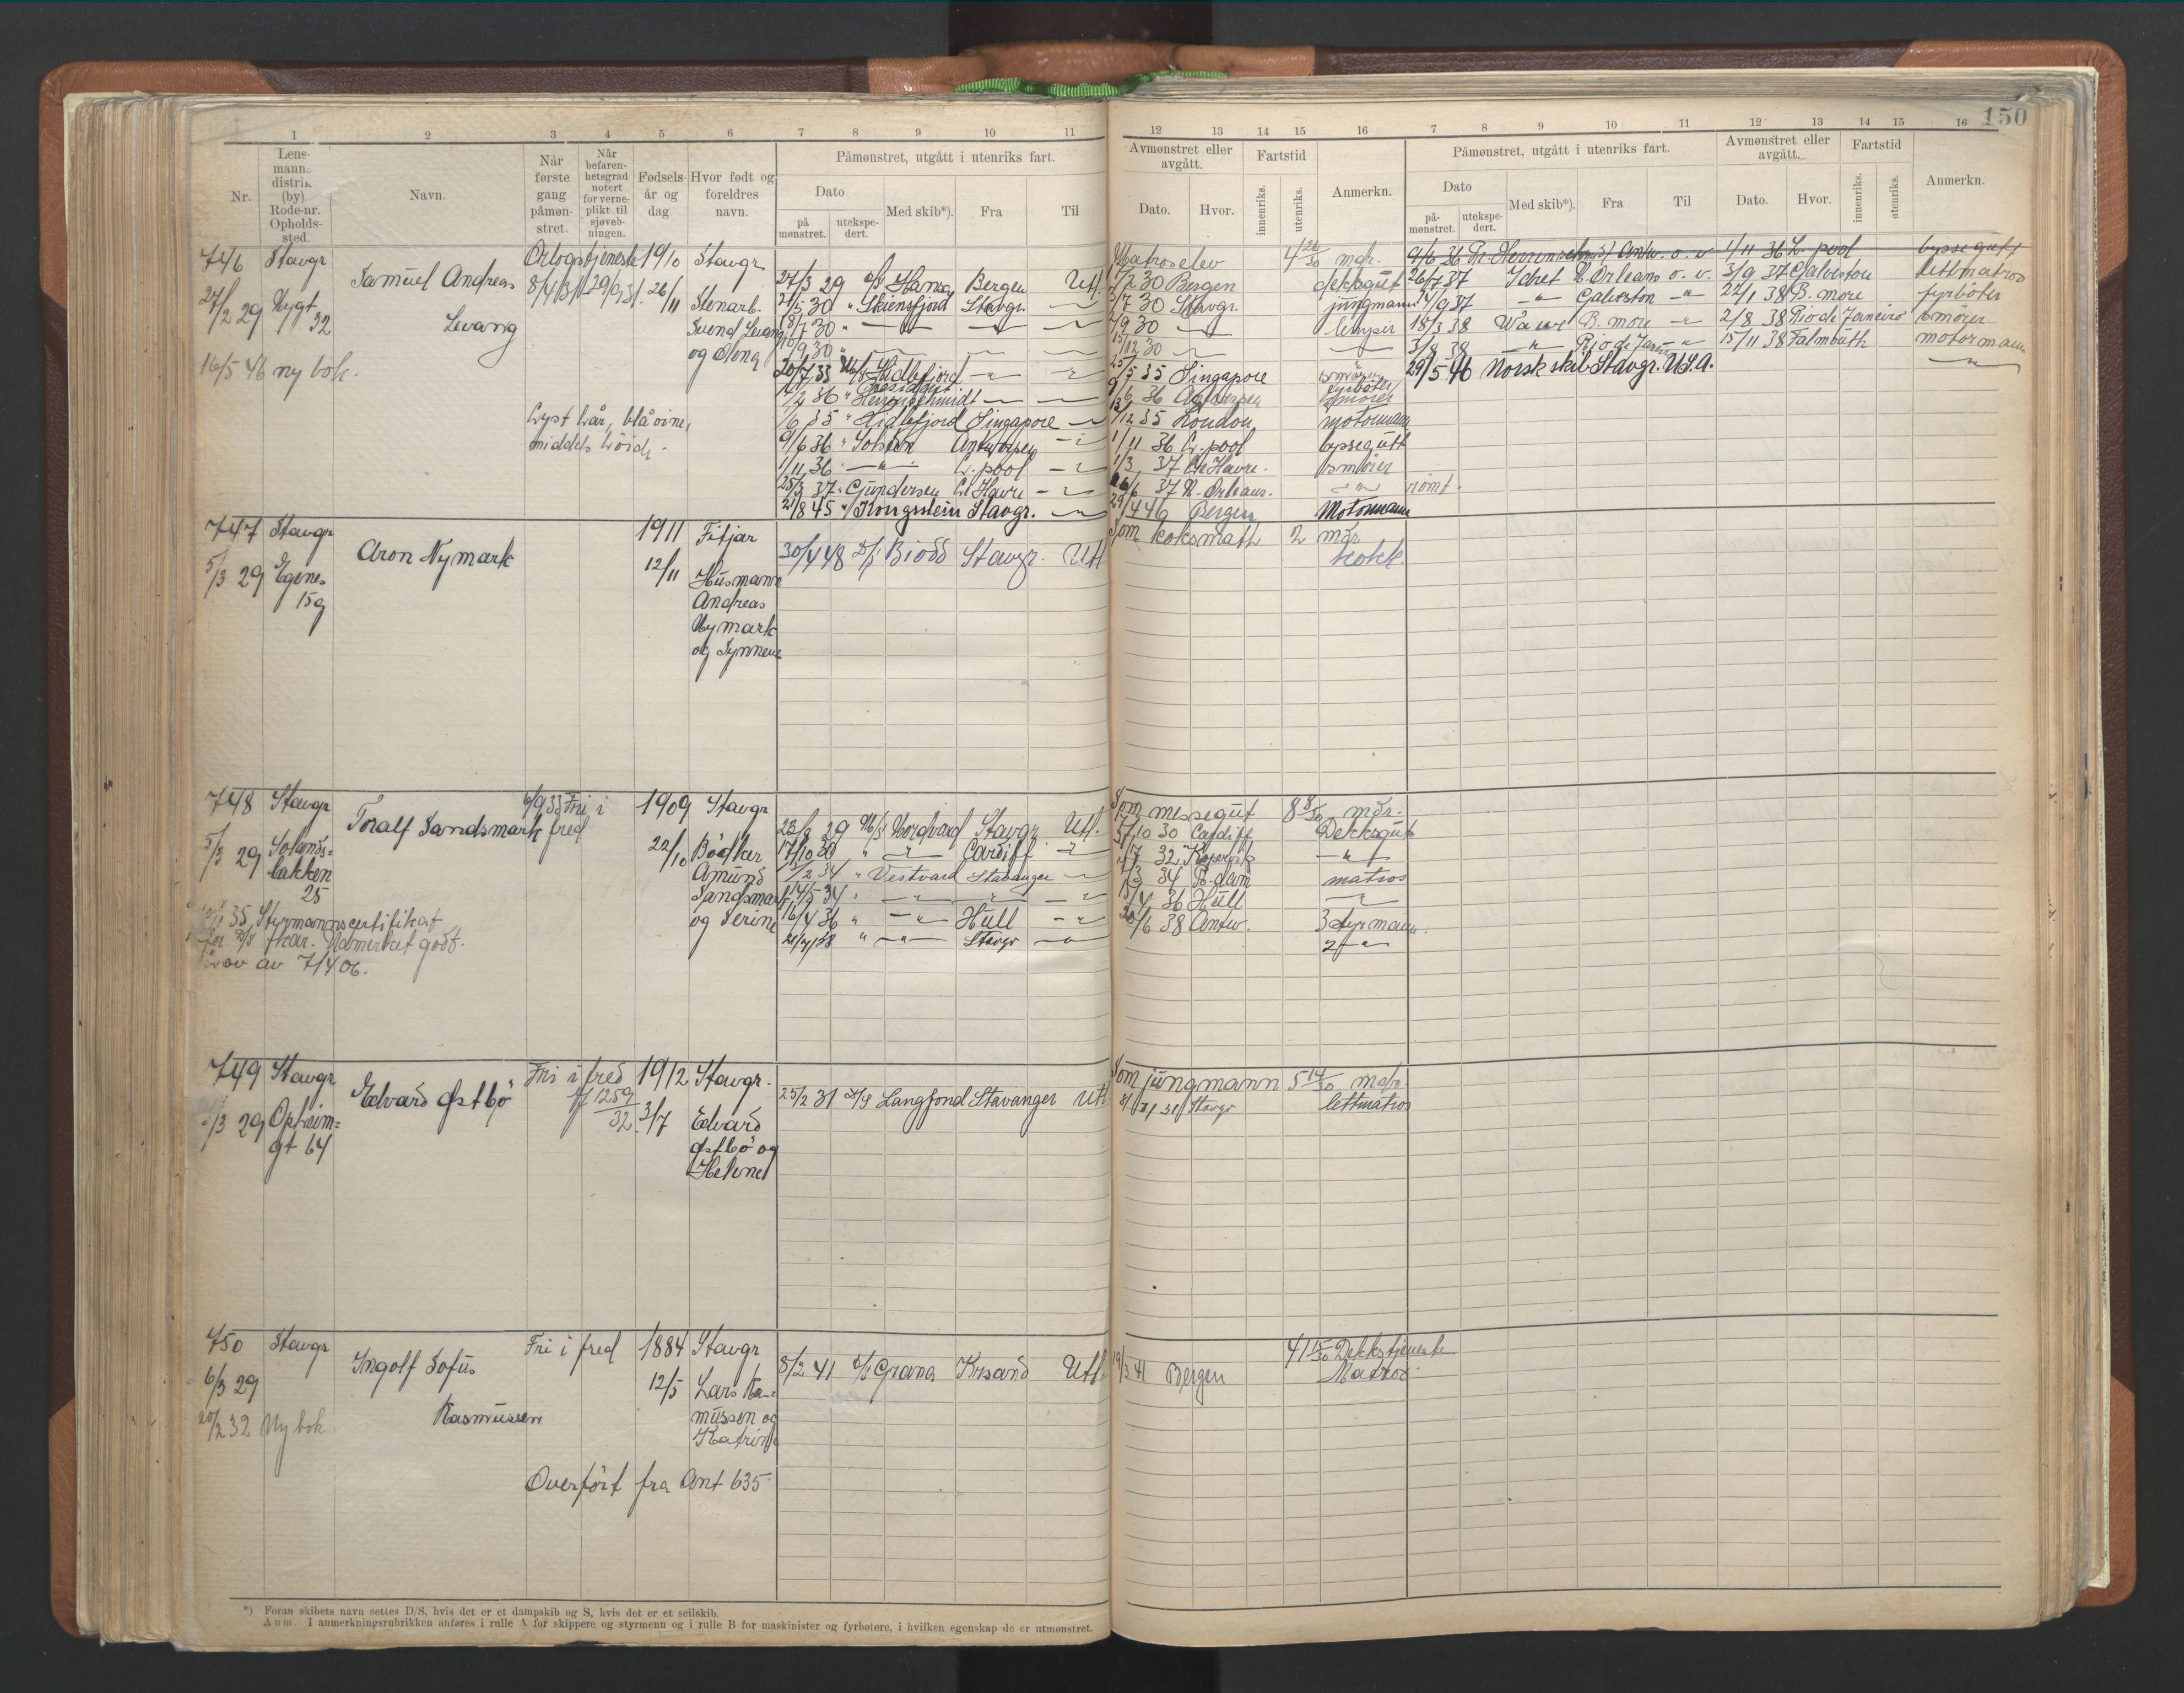 150
1 2 3 4 5 6 7 8 9 10 11 12 13 14 15 16 7 8 9 10 11 12 13 14 15 16
Nr.
Lens-
mann.
distrik
(by).
Rode-nr.
Opholds-
sted.
Navn.
Når
første
gang
påmøn-
stret.
Når
befaren-
hetsgrad
notert
for verne-
plikt til
sjøveb-
ningen.
Fødsels-
år og
dag.
Hvor født og
foreldres
navn.
Påmønstret, utgått i utenriks fart.
Dato
på
mønstret.
utekspe-
dert.
Med skib*).
Fra
Til
Avmønstret eller
avgått.
Dato.
Hvor.
Fartstid
innenriks.
utenriks.
Anmerkn.
Påmønstret, utgått i utenriks fart.
Dato
på-
mønstret.
utekspe-
dert.
Med skib*).
Fra
Til
Avmønstret eller
avgått.
Dato.
Hvor.
Fartstid
innenriks.
utenriks.
Anmerkn.
746 Stavgr
27/2 29 Nygt
32
16/5 46 ny bok.
Samuel Andreas
Levang
Orlogstjeneste
8/4/31-29/9/31.
Lyst hår, blå öine,
middels höide.
1910
26/11
Stavgr
Stenarb.
Svend Levang
og Anna
27/3 29 D/S Hansa Bergen Utl.
21/5 30 " Skiensfjord Stavgr. —
18/7 30 " — — —
/9 30 " — — —
20/7 33 M/S Hidlefjord —"— —
/2 36 " Herrenschmidt — —
/6 35 " Hidlefjord Singapore —
9/6 36 " Solsten Antwerpen —
1/11 36 —"— L.pool —
25/3 37 " Gundersen Le Havre —
21/8 45 " Kongsstein Stavgr. —
Matroselev 4 mdr.
/2 30 Bergen dekksgut
/7 30 Stavgr. jungmann
/9 30 — lemper
/12 30 — —
25/5 35 Singapore smörer
9/6 36 Antwerpen smörer
/12 35 London motormann
1/11 36 L.pool byssegutt
1/3 37 Le Havre. smörer
16/6 37 N. Orleans. —"— römt.
29/4 46 Bergen Motormann
9/6 36 Pr. Herrenschmidt Antw. o. v 1/11 36 L. pool byssegutt
26/7 37 Idret N. Orleans o. v. 3/9 37 Galveston lettmatros
24/9 37 —"— Galveston —"— 22/1 38 B. more fyrböter
18/3 38 B. more —"— 2/8 38 Rio de Janeiro smörer
3/8 38 —"— Rio de Janeiro " 15/11 38 Falmouth motormann
29/5 46 Norsk skib Stavgr. U.S.A. —
747 Stavgr
5/3 29 Egenes
15g
Aron Nymark
1911
12/11
Fitjar
Husmann
Andreas
Nymark
og Synneve
30/4 48 D/S Biodd Stavgr. Utl
Som koksmath 2 mdr
kokk.
748 Stavgr
5/3 29 Solands-
bakken
25
Toralf Sandsmark
6/9 33 Fri i
fred
35 Styrmannscertifikat
for D/S fkar. Utmerket godt.
Lov av 7/4 06.
1909
22/10
Stavgr
Bödker
Amund
Sandsmark
og Serine
23/8 29 M/S Nordvard Stavgr. Utl.
17/10 30 " —"— Cardiff —
/2 34 " Vestvard Stavanger —
14/5 34 " —"— —"— —"
16/4 36 " —"— Hull —"
21/7 38 " —"— Stavgr —
Som messegut 8 8/30 mdr.
/10 30 Cardiff Dekksgut
/7 32 Kopervik —"—
/3 34 R.dam matros
/4 36 Hull —
30/6 38 Antw. 3 styrmann.
2 —"—
749 Stavgr
/3 29 Opheim-
gt 64
Edvard Østbö
Fri i fred
1259
32.
1912
3/7
Stavgr.
Edvard
Østbö og
Helene
25/2 31 D/S Langfond Stavanger Utl
Som jungmann 5 14/30 mdr
31 Stavgr lettmatros
750 Stavgr
6/3 29
20/2 32 Ny bok
Ingolf Sofus
Rasmussen
Fri i fred
Overfört fra Ant 635
1884
12/5
Stavgr
Lars Ra-
mussen og
Katrine
8/2 41 D/S Grana Krsand Utl.
41 15/30 Dekkstjeneste
19/3 41 Bergen Matros.
*) Foran skibets navn settes D/S, hvis det er et dampskib og S, hvis det er et seilskib.
Anm. I anmerkningsrubrikken anføres i rulle A for skippere og styrmenn og i rulle B for maskinister og fyrbøtere, i hvilken egenskap de er utmønstret.